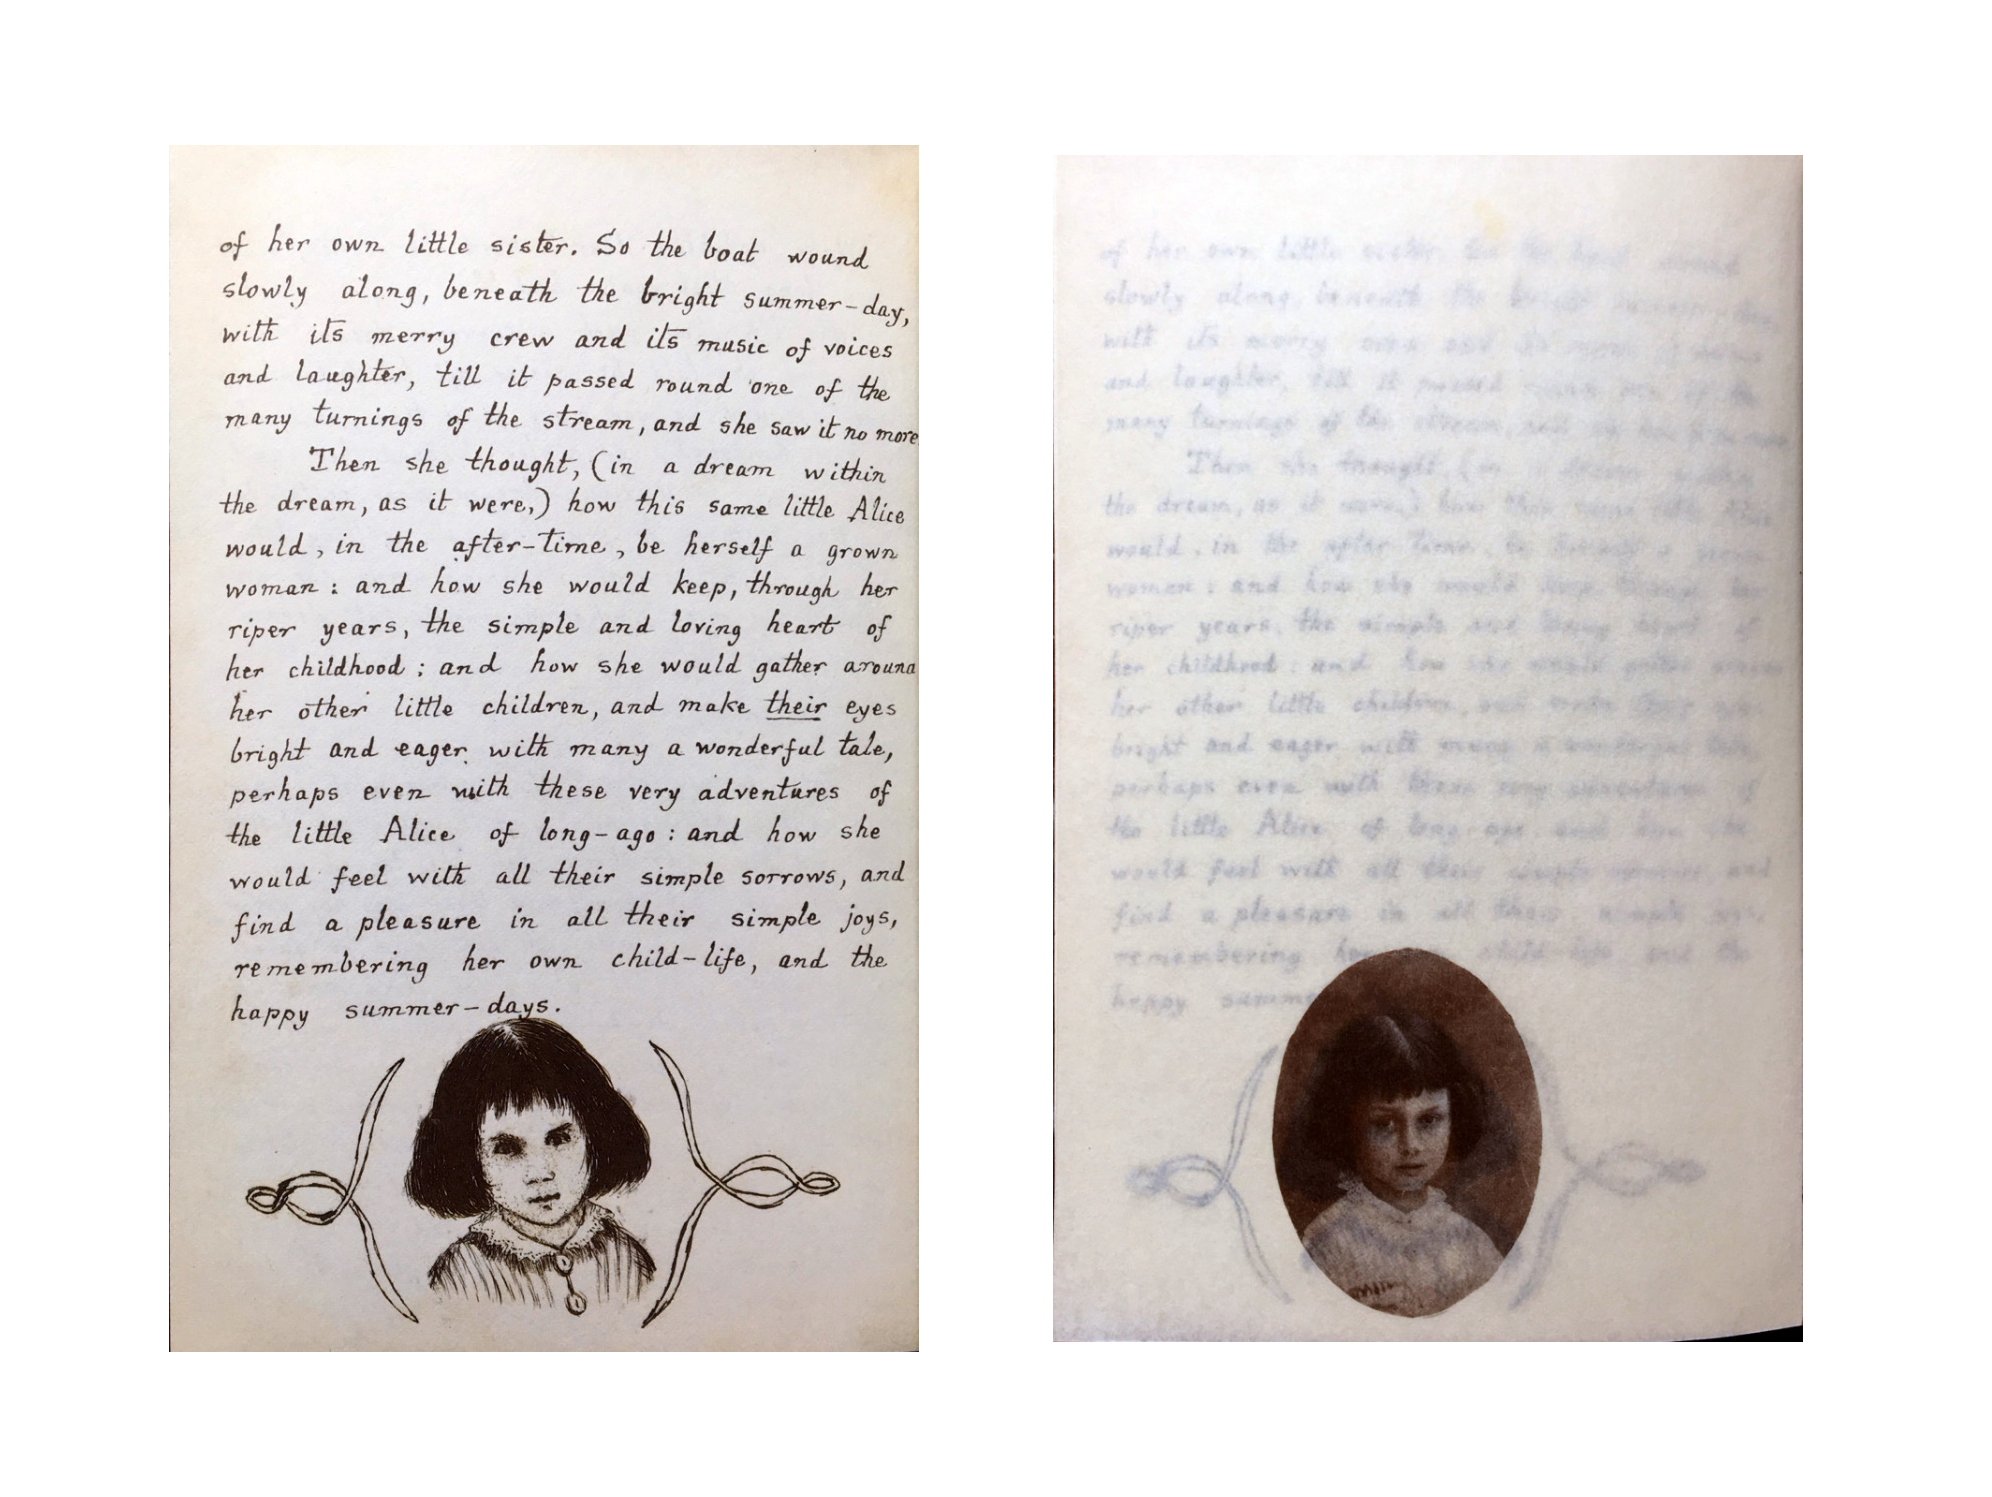 of her own little sister. So the boat wound
slowly along, beneath the bright summer-day,
with its merry crew and its music of voices
and laughter, till it passed round one of the
many turnings of the stream, and she saw it no more
Then she thought, (in a dream within
the dream, as it were,) how this same little Alice
would, in the after-time, be herself a grown
woman: and how she would keep, through her
riper years, the simple and loving heart of
her childhood: and how she would gather around
her other little children, and make their eyes
bright and eager with many a wonderful tale,
perhaps even with these very adventures of
the little Alice of long-ago: and how she
would feel with all their simple sorrows, and
find a pleasure in all their simple joys,
remembering her own child-life, and the
happy summer-days.
of her own little sister. So the
slowly along, beneath the
with its merry
and laughter, till it passed
many turnings of the stream, and
Then she thought, (in
the dream, as it were,) how this same
would, in the after-time,
woman: and how she would
riper years, the simple and
her childhood: and how she would
her other little children,
bright and eager with many a wonderful
perhaps even with these very adventures of
the little Alice of long-ago
would feel with all their simple sorrows, and
find a pleasure in all their simple
remembering child-life, and the
happy